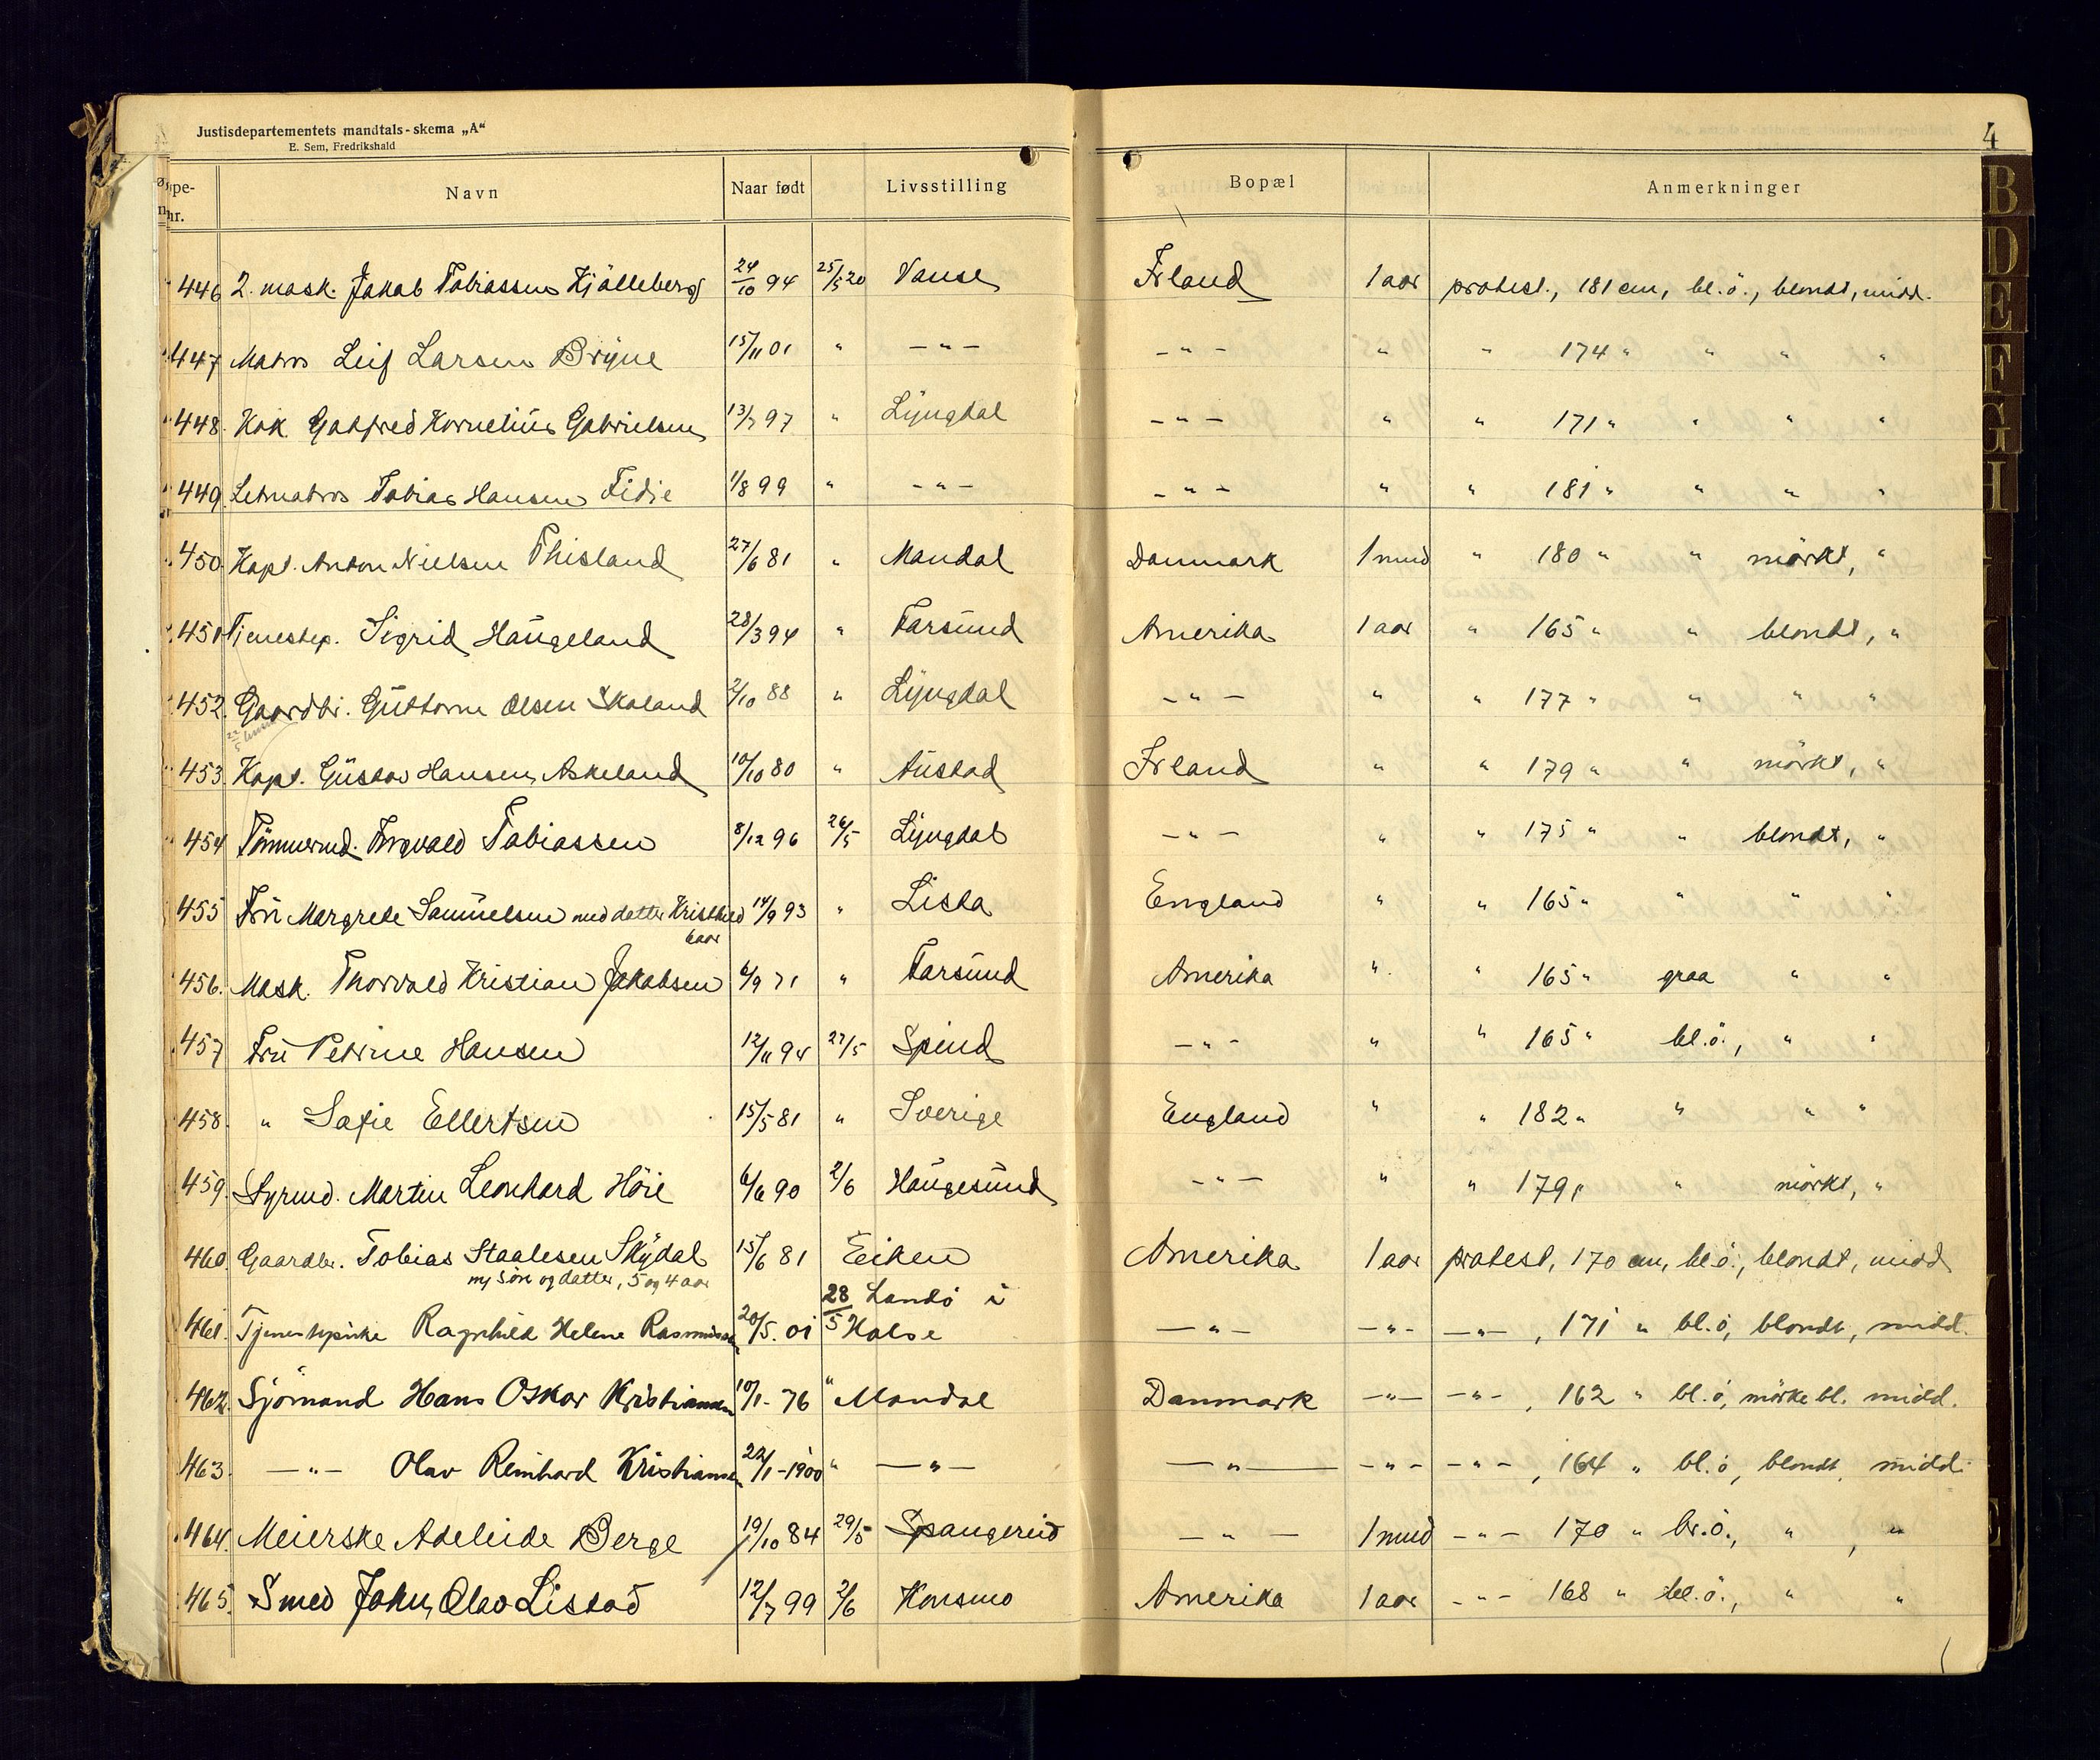 Justisdepartementets mandtals-skema „A“
E. Sem, Fredrikshald
4
øpe-
nr.
Navn Naar født Livsstilling Bopæl Anmerkninger
446 2. mask. Jakob Tobiassen Kjölleberg 24/10 94 25/5 20 Vanse Irland 1 aar protest., 181 cm, bl. ö., blondt, midd.
447 Matros Leif Larsen Bryne 15/11 01 " — " — — " — " " 174 " " " "
448. Kok Gotfred Kornelius Gabrielsen 13/7 97 " Lyngdal — " — " " 171 " " " "
449. Letmatros Tobias Hansen Fidje 1/8 99 " — " — — " — " " 181 " " " "
450 Kapt. Anton Nielsen Thisland 27/6 81 " Mandal Danmark 1 mnd " 180 " " mörkt, "
451 Tjenestep. Sigrid Haugeland 28/3 94 " Farsund Amerika 1 aar " 165 " " blondt, "
452. Gaardbr. Guttorm Olsen Skoland 2/10 88 " Lyngdal — " — " " 177 " " " "
453 Kapt. Gustav Hansen Askeland 10/10 80 " Austad Irland " " 179 " " mörkt, "
454 Tömmermd. Ingvald Tobiassen 8/12 96 26/5 Lyngdal — " — " " 175 " " blondt, "
455 Fru Margrete Samuelsen med datter Kristhild 14/9 93 " Lista England " " 165 " " " "
6 aar
456. Mask. Thorvald Kristian Jakobsen 6/9 71 " Farsund Amerika " " 165 " graa " "
457 Fru Petrine Hansen 12/11 94 27/5 Spind — " — " " 165 " bl. ö., " "
458. " Sofie Ellertsen 15/5 81 " Sverige England " " 182 " " " "
459. Styrmd. Martin Leonhard Höie 6/6 90 2/6 Haugesund — " — " " 179 " " mörkt, "
460. Gaardbr. Tobias Staalesen Skydal 15/6 81 Eiken Amerika 1 aar protest, 170 cm, bl. ö., blondt, midd
m/ sön og datter, 5 og 4 aar
28/5 Landö i
461. Tjenestepike Ragnhild Helene Rasmussen 20/5. 01 Halse — " — — " — — " — , 171 " bl. ö, blondt, midd.
462. Sjömand Hans Oskar Kristiansen 10/1 - 76 " Mandal Danmark — " — — " — , 162 " bl. ö, mörke bl. midd.
463. — " — Olav Reinhard Kristiansen 22/1 - 1900 " — " — — " — — " — — " — , 164 " bl. ö, blondt, midd.
464. Meierske Adeleide Berge 19/10 84 29/5 Spangereid — " — 1 mnd — " — 170 " br. ö., " , "
465. Smed John Olav Listad 12/7 99 2/6 Konsmo Amerika 1 aar — " — 168 " bl. ö., " "
B
D
E
F
G
H